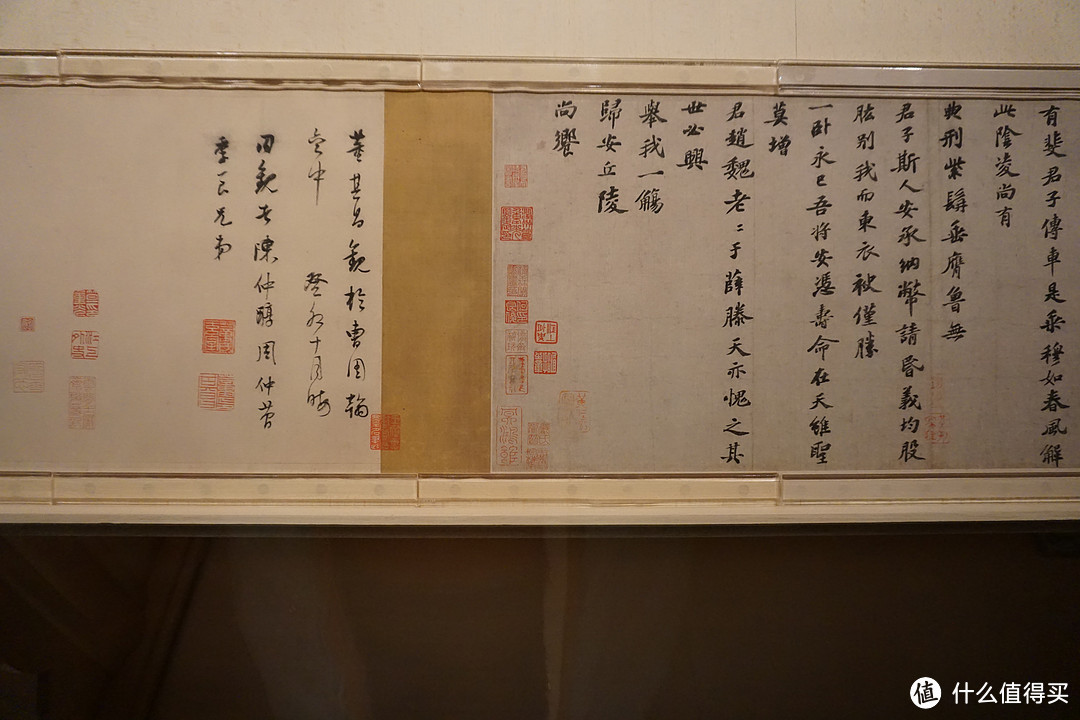 有斐君子傳車是乘穆如春風解
此陰淩尚有
典刑紫髯垂膺魯無
君子斯人安承納幣請昏義均股
肱別我而東衣袂僅勝
一臥永已吾將安憑壽命在天維聖
莫增
君趙魏老〻于薛滕天亦愧之其
世必興
舉我一觴
歸安丘陵
尚饗
董其昌觀於曹周翰
中 癸卯十月晦
同觀者陳仲醇周仲
季良兄弟
值 什么值得买